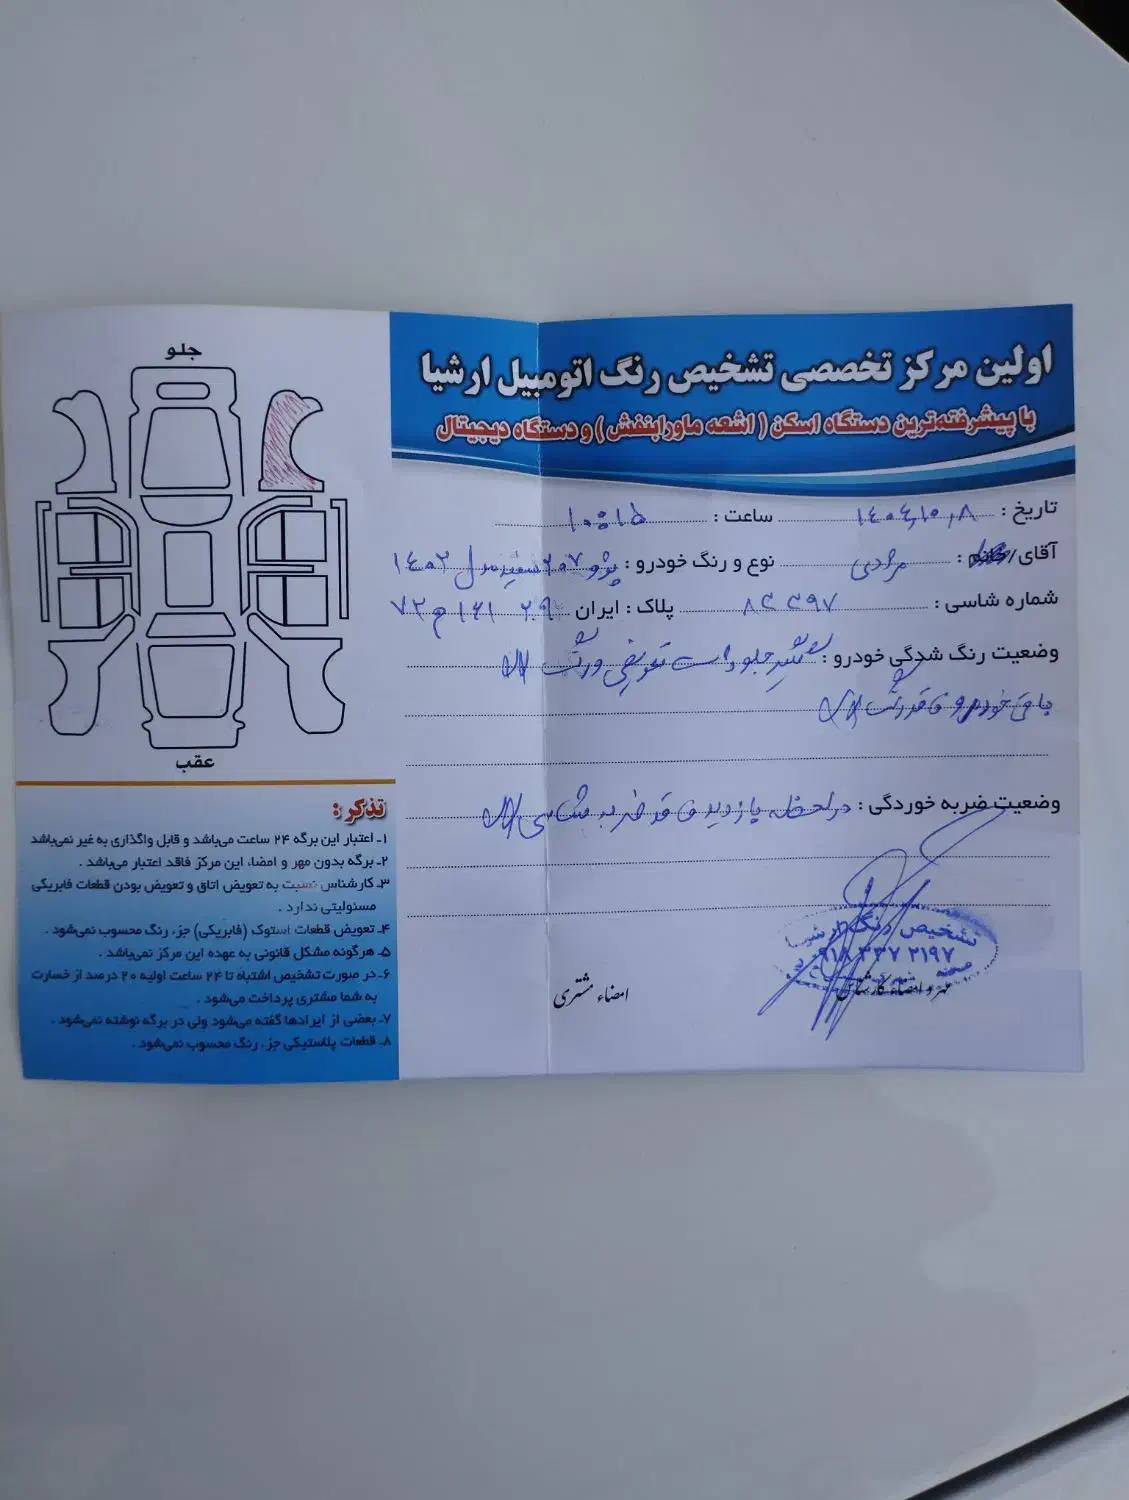 اولین مرکز تخصصی تشخیص رنگ اتومبیل ارشیا
با پیشرفته‌ترین دستگاه اسکن ( اشعه ماورابنفش ) و دستگاه دیجیتال
تاریخ : ۱۴۰۴,۱۰,۸ ساعت : ۱۰:۱۵
آقای/خانم : مرادی نوع و رنگ خودرو : پژو ۲۰۷ سفید مدل ۱۴۰۲
شماره شاسی : پلاک : ایران
وضعیت رنگ شدگی خودرو : گلگیر جلو راست تعویض و رنگ است
باقی خودرو فاقد رنگ است
وضعیت ضربه خوردگی : در لحظه بازدید فاقد ضربه شاسی است
تشخیص رنگ ارشیا
۰۹۱۸ ۳۳۷ ۲۱۹۷
مهر و امضاء کارشناس
امضاء مشتری
جلو
عقب
تذکر :
۱ـ اعتبار این برگه ۲۴ ساعت می‌باشد و قابل واگذاری به غیر نمی‌باشد
۲ـ برگه بدون مهر و امضاء، این مرکز فاقد اعتبار می‌باشد .
۳ـ کارشناس نسبت به تعویض اتاق و تعویض بودن قطعات فابریکی
مسئولیتی ندارد .
۴ـ تعویض قطعات استوک (فابریکی) جزء رنگ محسوب نمی‌شود .
۵ـ هرگونه مشکل قانونی به عهده این مرکز نمی‌باشد .
۶ـ در صورت تشخیص اشتباه تا ۲۴ ساعت اولیه ۲۰ درصد از خسارت
به شما مشتری پرداخت می‌شود .
۷ـ بعضی از ایرادها گفته می‌شود ولی در برگه نوشته نمی‌شود .
۸ـ قطعات پلاستیکی جزء رنگ محسوب نمی‌شود .